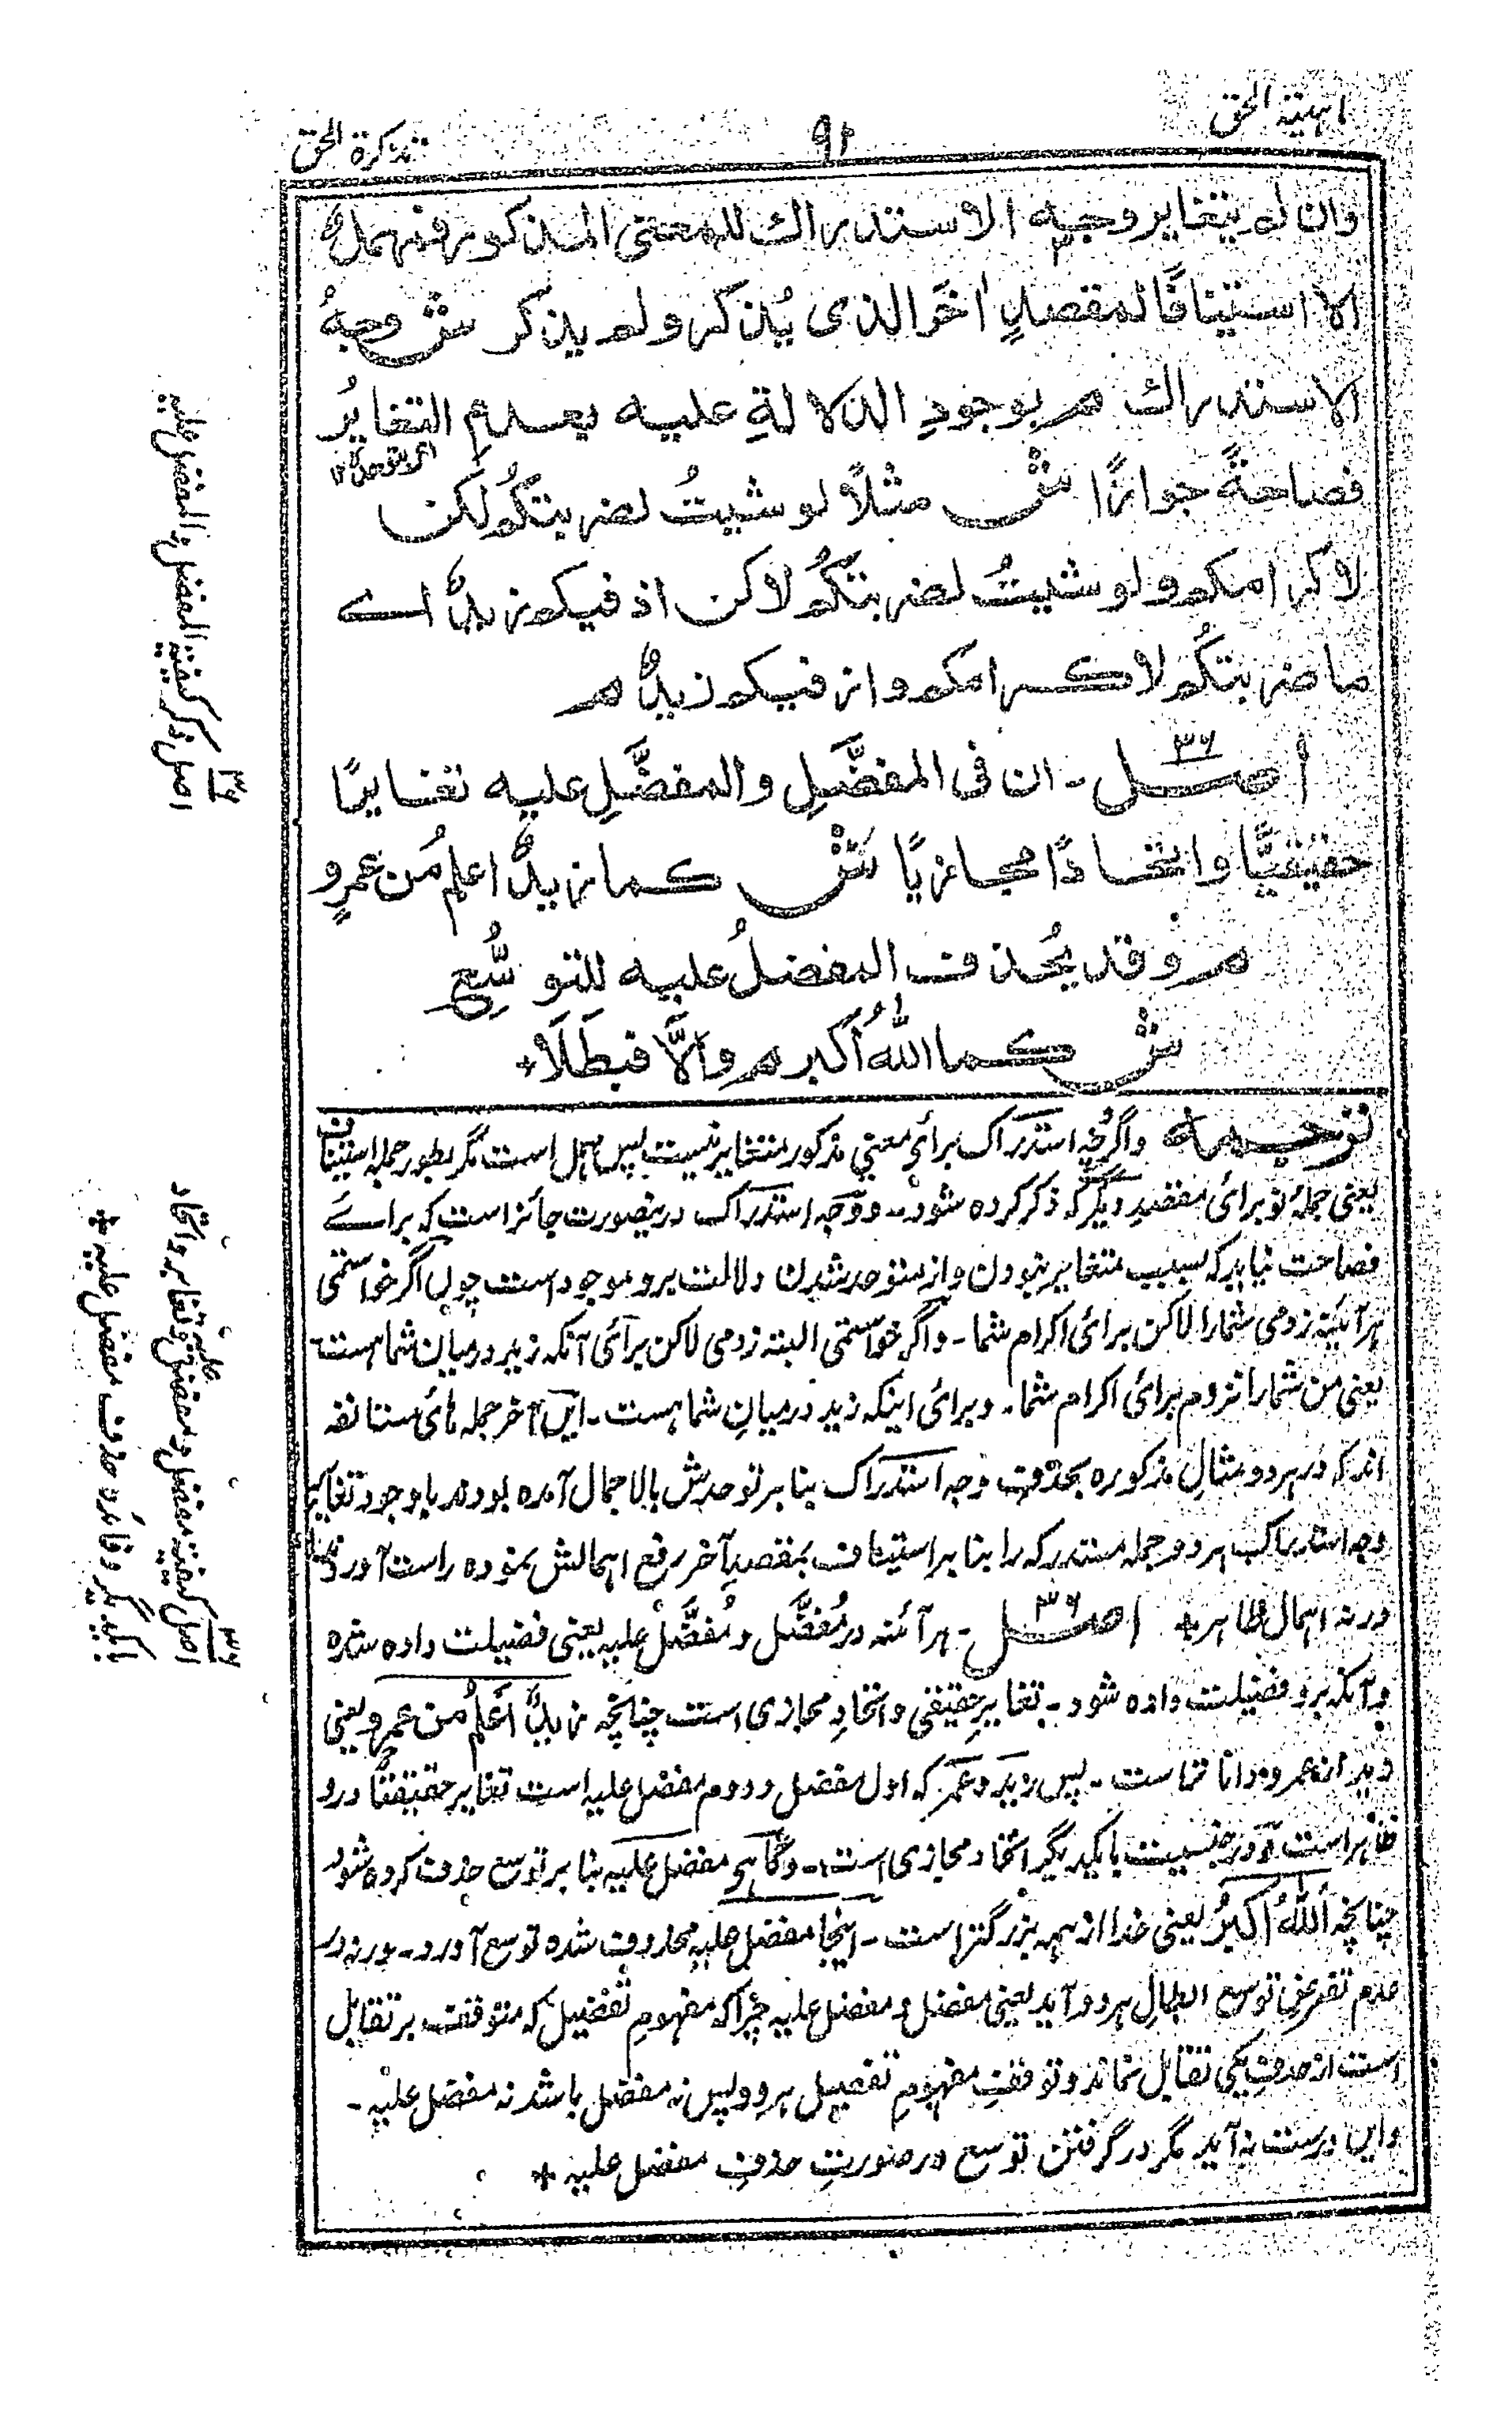 تذکرة الحق
٩٢
ماهیّة الحق
وان لم یتغایر وجیه الاستدراك للمعنی المذکور فمهملٌ
الا استینافًا لمقصدٍ اٰخَر الذی یُذکر ولم یذکر ش وجهُ
الاستدراك م بوجودِ الدلالةِ علیه یعلم التغایرُ
فصاحةً جوازًا ش مثلًا لو شیتُ لضربتکُم لکن
لاکرامکم ولو شیتُ لضربتکُم لاکن اذ فیکم زیدٌ اے
ماضربتکُم لاکرامکم واذ فیکم زیدٌ م
اصل ٣٦ ـ ان فی المفضَّلِ والمفضَّلِ علیه تغایرًا
حقیقیًّا واتحادًا مجازیًا ش کما زیدٌ اعلمُ من عمرٍو
م وقد یُحذف المفضلُ علیه للتوسُّعِ
ش کما اللهُ اکبر م والَّا فبطَلَا+
ترجمه واگر وجه استدراک برائے معنیٔ مذکور متغایر نیست پس مهمل است مگر بطور جمله استیناف
یعنی جملهٔ نو برائی مقصدِ دیگر که ذکر کرده شود۔ ووجه استدراک درینصورت جائز است که براے
فصاحت نیاید که بسبب متغایر نبودن واز متوحد شدن دلالت برو موجود است چون اگر خواستمی
هرآئینه زدمی شمارا لاکن برائی اکرام شما۔ واگر خواستمی البته زدمی لاکن برائی آنکه زید درمیان شما هست
یعنی من شمارا نزدم برائی اکرام شما۔ وبرائی اینکه زید درمیانِ شما هست۔ این آخر جمله هائی مستانفه
اند که در هردو مثالِ مذکوره بحذفِ وجه استدراک بنابر توحدش بالاجمال آمده بودند باوجود تغایر
وجه استدراک هردو جمله مستدرکه را بنابر استیناف بمقصدِ آخر رفع اهمالش نموده راست آورد
ورنه اهمال ظاهر+ اصل ٣٦ ـ هرآئنه در مُفضَّل و مُفضَّل علیه یعنی فضیلت داده شده
وآنکه برو فضیلت داده شود۔ تغایرِ حقیقی واتحادِ مجازی است چنانچه زیدٌ اَعلمُ من عمرٍو یعنی
زید از عمرو دانا تر است۔ پس زید وعمر که اول مفضل ودوم مفضل علیه است تغایر حقیقتًا درو
ظاهر است ودر جنسیت بایکدیگر اتحاد مجازی است۔ وگاهی مفضل علیه بنابر توسع حذف کرده شود
چنانچه اَللهُ اکبرُ یعنی خدا از همه بزرگتر است۔ اینجا مفضل علیه محذوف شده توسع آورد۔ ورنه در
عدم تقرِیٔ توسع ابطالِ هردو آید یعنی مفضل ومفضل علیه چراکه مفهومِ تفضیل که متوقف بر تقابل
است از حذفِ یکی تقابل نماند وتوقفِ مفهومِ تفضیل هردو پس نه مفضل باشد نه مفضل علیه۔
واین درست نه آید مگر درگرفتن توسع در صورتِ حذفِ مفضل علیه +
٣٦ اصل ذکر کیفیت المفضل والمفضل علیه
٣٦ اصل کیفیت مفضل ومفضل علیه وتغایر واتحاد
بایکدیگر وفائده حذف مفضل علیه +